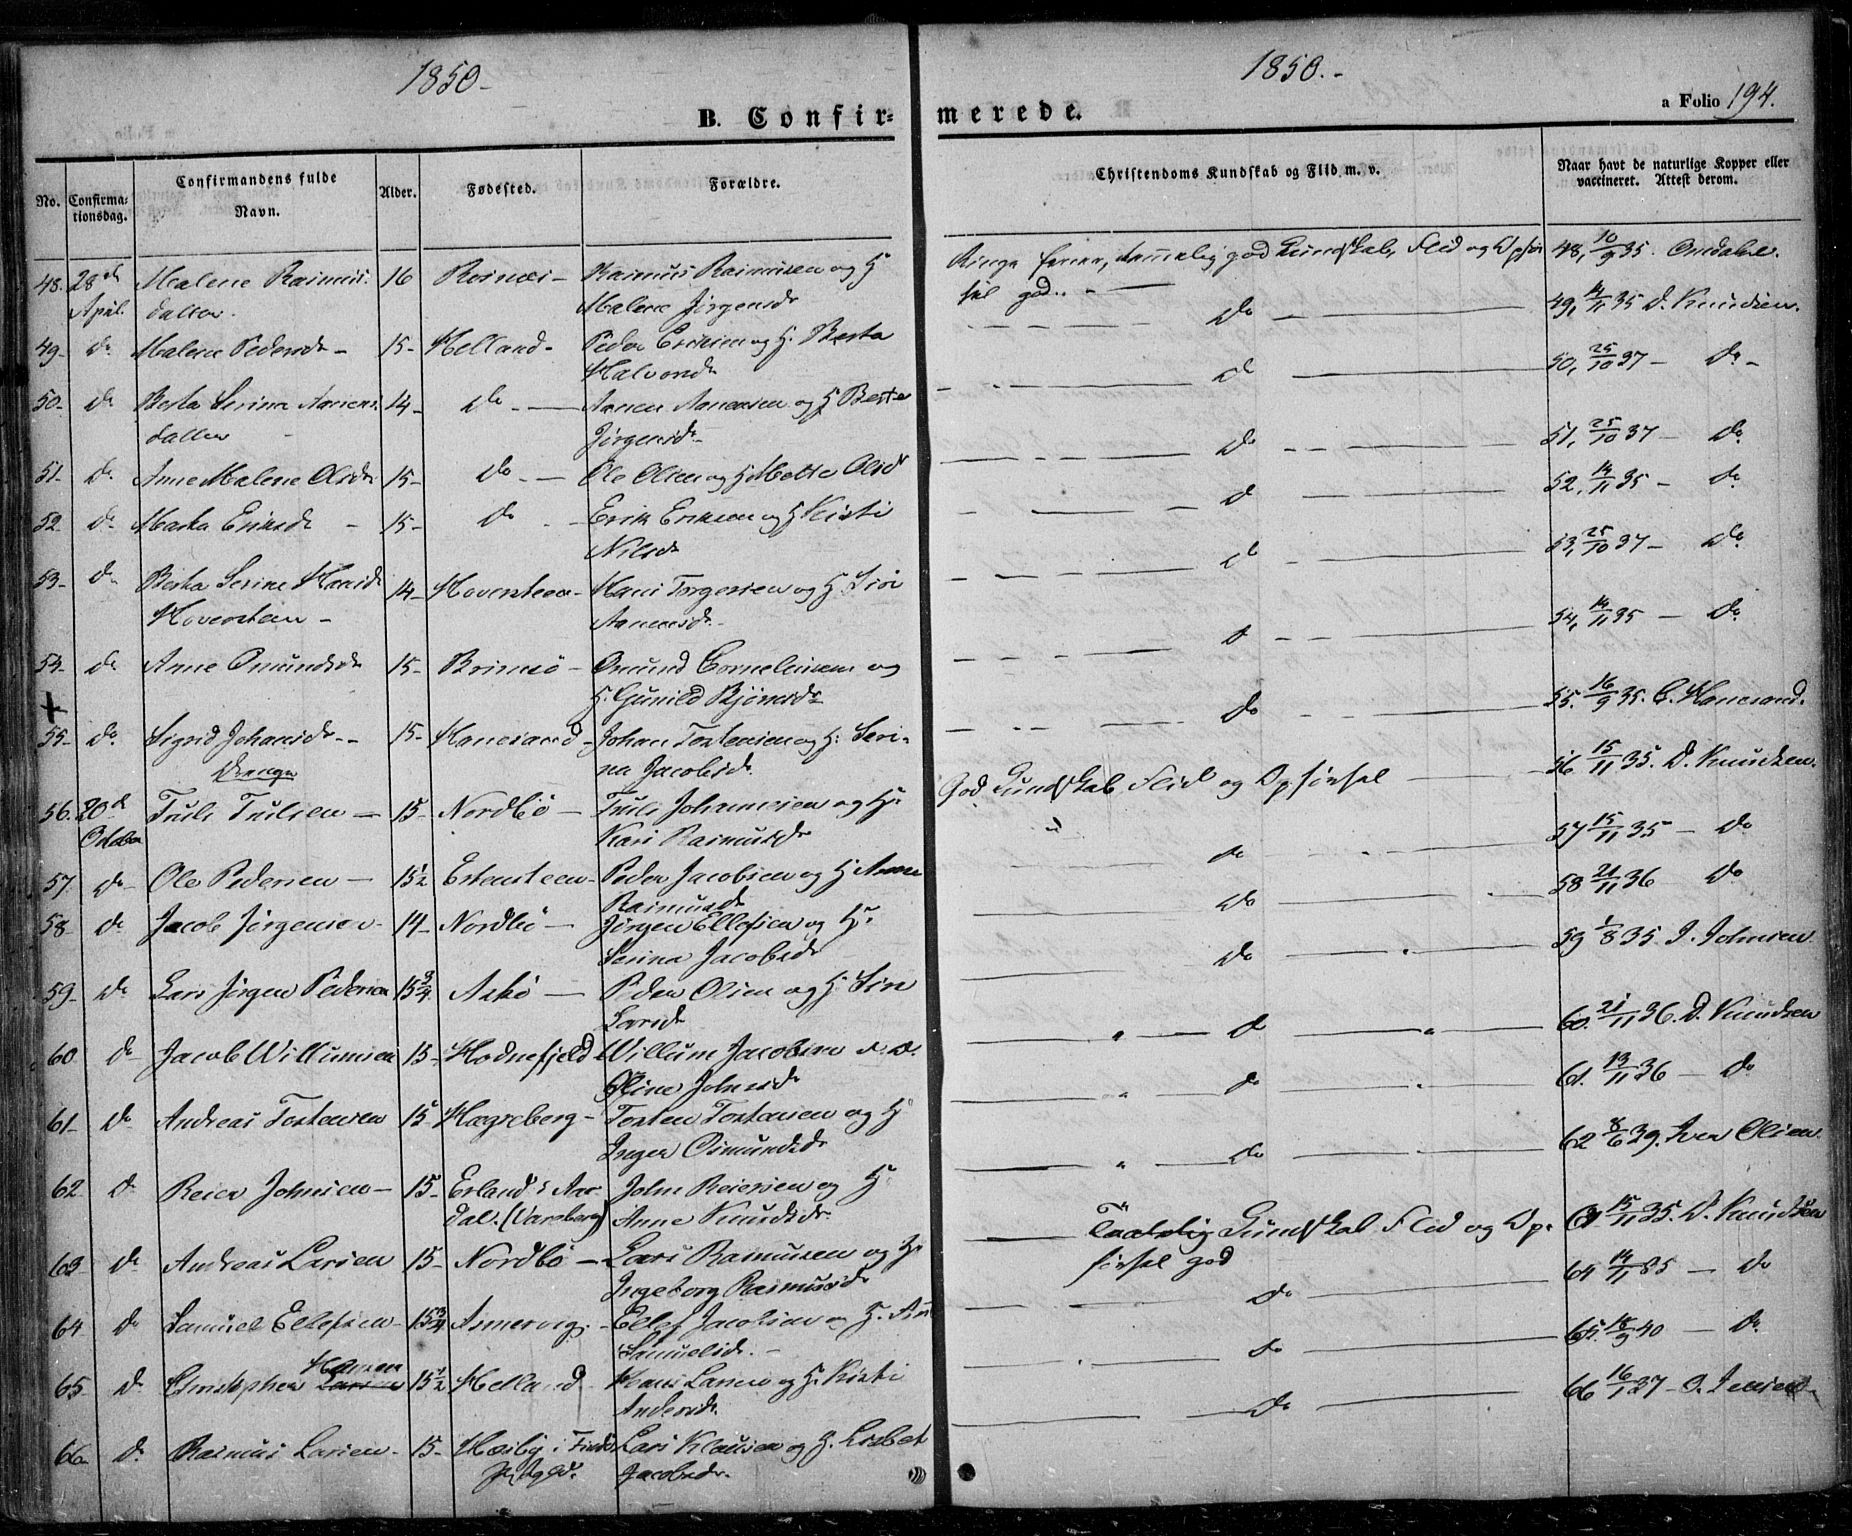 1850-
B. Confir-
No.
Confirma-
tionsdag.
Confirmandens fulde
Navn.
Alder.
Fødested.
Forældre.
48. 28de Malene Rasmus- 16 Rosnæs- Rasmus Rasmusen og H
April. datter. Malene Jørgensdr
49- do Malene Pedersdr - 15- Helland- Peder Eriksen og H. Berta
Halvorsdr
50- do Berta Serina Aanens 14- do - Aanen Aanensen og H Berte
datter Jørgensdr
51- do Anne Malene Olsdr 15- do - Ole Olsen og H Mette Olsdr
52- do Marta Eriksdr - 15- do - Erik Eriksen og H Kisti
Nilsdr
53- do Berta Serine Hansdr 14- Hoversteen- Hans Torgersen og H. Siri
Hoverstein - Aanensdr-
54- do Anne Omundsdr 15- Brimsø - Omund Corneliusen og
H. Gunild Bjørnsdr
55- do Sigrid Johansdr- 15- Hanesand- Johan Tostensen og H: Seri-
na Jacobsdr.
Drenge
56. 20de Truls Trulsen - 15- Nordbø - Truls Johannesen og H:
October Kari Rasmusdr
57. do Ole Pedersen - 15½ Estensteen- Peder Jacobsen og H Anne
Rasmusdr
58- do Jacob Jørgensen- 14- Nordbø - Jørgen Ellefsen og H:
Serina Jacobsdr
59- do Lars Jørgen Pedersen 15¾ Askø - Peder Olsen og H Siri
Larsdr
60 do Jacob Willumsen 15- Hodnefjeld- Willum Jacobsen
Oline Johnsdr
61- do Andreas Tostensen 15 Hægreberg- Tosten Tostensen og H
Inger Osmundsdr
62 do Reier Johnsen- 15- Erland i Aar- John Reiersen og H:
dal. (Varsberg) Anne Knudsdr.
63- do Andreas Larsen 15- Nordbø - Lars Rasmusen og H:
Ingeborg Rasmusdr
64 do Samuel Ellefsen- 15¾ Asmervig. - Ellef Jacobsen
Samuelsdr. -
Hansen
65- do Christopher Larsen 15½ Helland Hans Larsen og H. Kisti
Andersdr.
66- do Rasmus Larsen- 15- Lars Klausen og H. Lisbet
Jacobsdr.
1850.-
merede.
a Folio 194.
Christendoms Kundskab og Flid m. v.
Naar havt de naturlige Kopper eller
vaccineret. Attest derom.
Ringe Evner, temmelig god Kundskab, Flid og Opfør 48, 10/9 35. Omdahl.
sel god. -
do 49, 14/11 35 D. Knudsen.
do 50, 25/10 37 - do -
do 51, 25/10 37 - do
do 52, 14/11 35 - do
do 53, 25/10 37 - do
do 54, 14/11 35 - do
do 55. 16/9 35. C. Hanesand.
God Kundskab Flid og Opførsel 56 15/11 35. D. Knudsen.
do 57 15/11 35 - do
do 58 21/11 36 do
do 59 1/8 35. J. Johnsen
do 60. 21/11 36. D. Knudsen
do 61. 13/11 36 - do
do 62 8/6 39. Iver Olsen.
Kundskab Flid og Op- 63 15/11 35. D. Knudsen
førsel god
do 64 14/11 35 - do
do 65. 18/9 40 - do
do 66 16/1 37 -